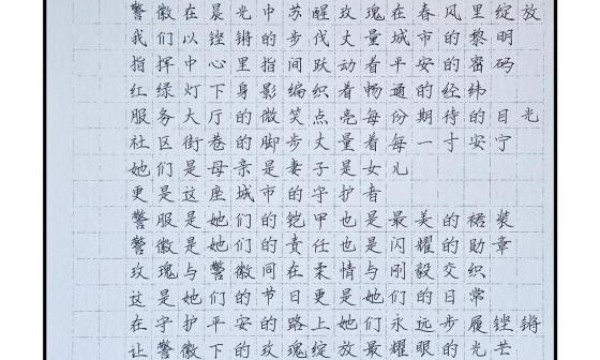 警徽在晨光中苏醒玫瑰在春风里绽放
我们以铿锵的步伐丈量城市的黎明
指挥中心里指间跃动着平安的密码
红绿灯下身影编织着畅通的经纬
服务大厅的微笑点亮每份期待的目光
社区街巷的脚步丈量着每一寸安宁
她们是母亲是妻子是女儿
更是这座城市的守护者
警服是她们的铠甲也是最美的裙装
警徽是她们的责任也是闪耀的勋章
玫瑰与警徽同在柔情与刚毅交织
这是她们的节日更是她们的日常
在守护平安的路上她们永远步履铿锵
让警徽下的玫瑰绽放最耀眼的光芒